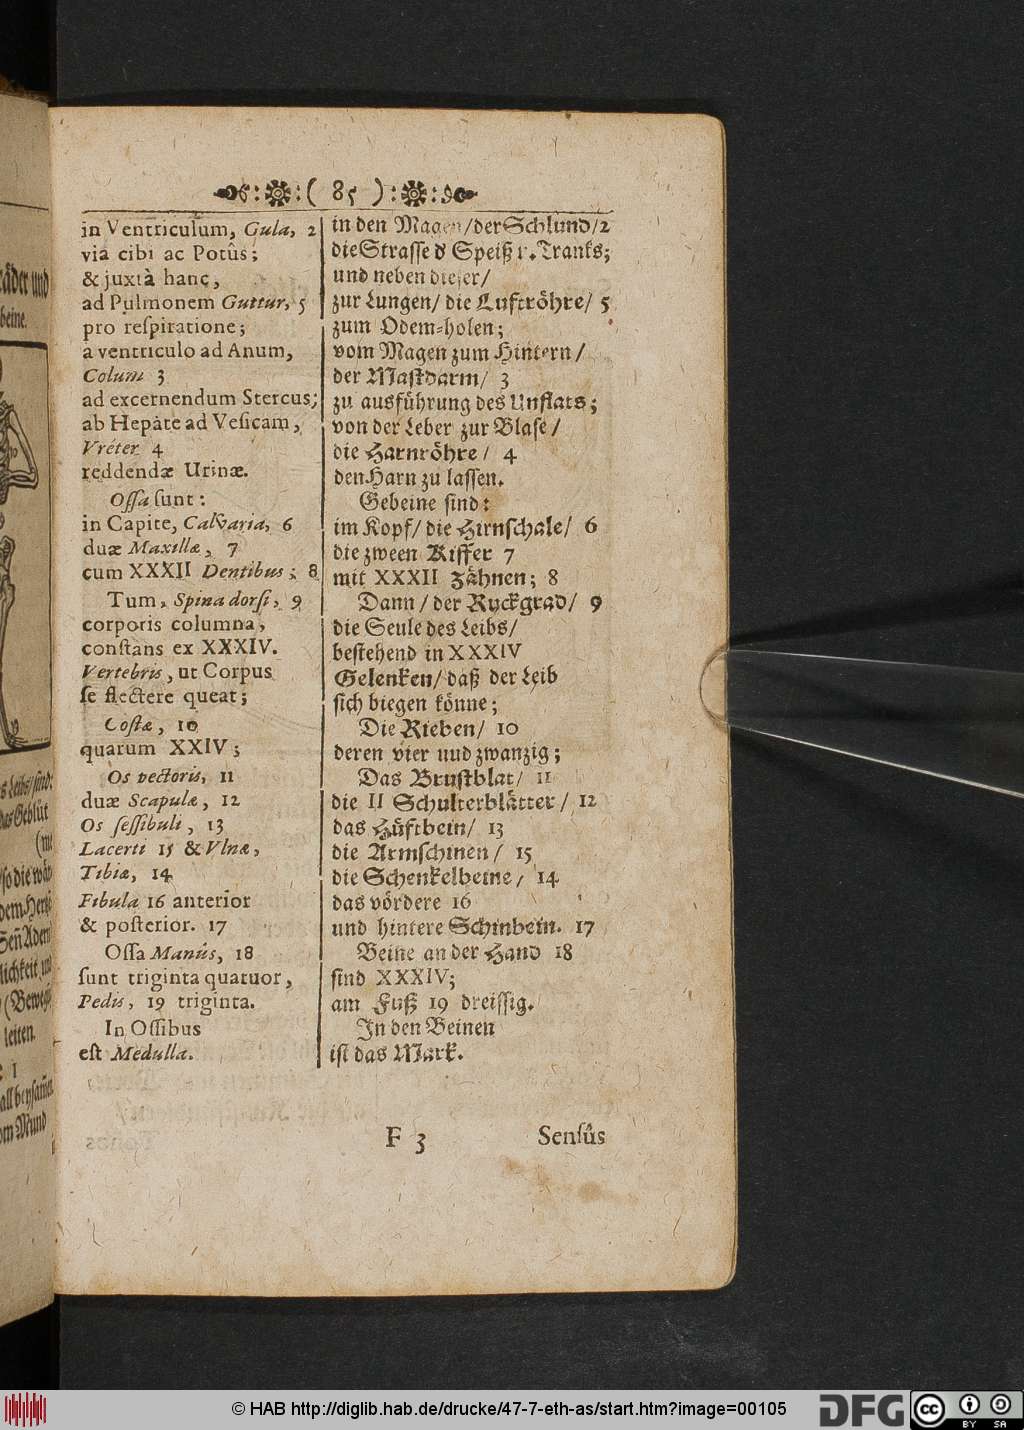 ( 85 )
in Ventriculum, Gula, 2
via cibi ac Potûs;
& juxtà hanc,
ad Pulmonem Guttur, 5
pro reſpiratione;
a ventriculo ad Anum,
Colum 3
ad excernendum Stercus;
ab Hepate ad Veſicam,
Vréter 4
reddendæ Urinæ.
Oſſa ſunt:
in Capite, Calvaria, 6
duæ Maxillæ, 7
cum XXXII Dentibus; 8
Tum, Spina dorſi, 9
corporis columna,
conſtans ex XXXIV.
Vertebris, ut Corpus
ſe flectere queat;
Coſtæ, 10
quarum XXIV;
Os pectoris, 11
duæ Scapulæ, 12
Os ſeſſibuli, 13
Lacerti 15 & Vlnæ,
Tibiæ, 14
Fibula 16 anterior
& poſterior. 17
Oſſa Manûs, 18
ſunt triginta quatuor,
Pedis, 19 triginta.
In Oſſibus
eſt Medulla.
in den Magen/der Schlund/2
die Straſſe d' Speiß u. Tranks;
und neben dieſer/
zur Lungen/ die Luftröhre/ 5
zum Odem-holen;
vom Magen zum Hintern/
der Maſtdarm/ 3
zu ausführung des Unflats;
von der Leber zur Blaſe/
die Harnröhre/ 4
den Harn zu laſſen.
Gebeine ſind:
im Kopf/ die Hirnſchale/ 6
die zween Kiffer 7
mit XXXII Zähnen; 8
Dann/ der Ryckgrad/ 9
die Seule des Leibs/
beſtehend in XXXIV
Gelenken/ daß der Leib
ſich biegen könne;
Die Rieben/ 10
deren vier und zwanzig;
Das Bruſtblat/ 11
die II Schulterblätter/ 12
das Hüftbein/ 13
die Armſchinen/ 15
die Schenkelbeine/ 14
das vördere 16
und hintere Schinbein. 17
Beine an der Hand 18
ſind XXXIV;
am Fuß 19 dreiſſig.
In den Beinen
iſt das Mark.
F 3
Senſûs
© HAB http://diglib.hab.de/drucke/47-7-eth-as/start.htm?image=00105
DFG
cc
BY SA